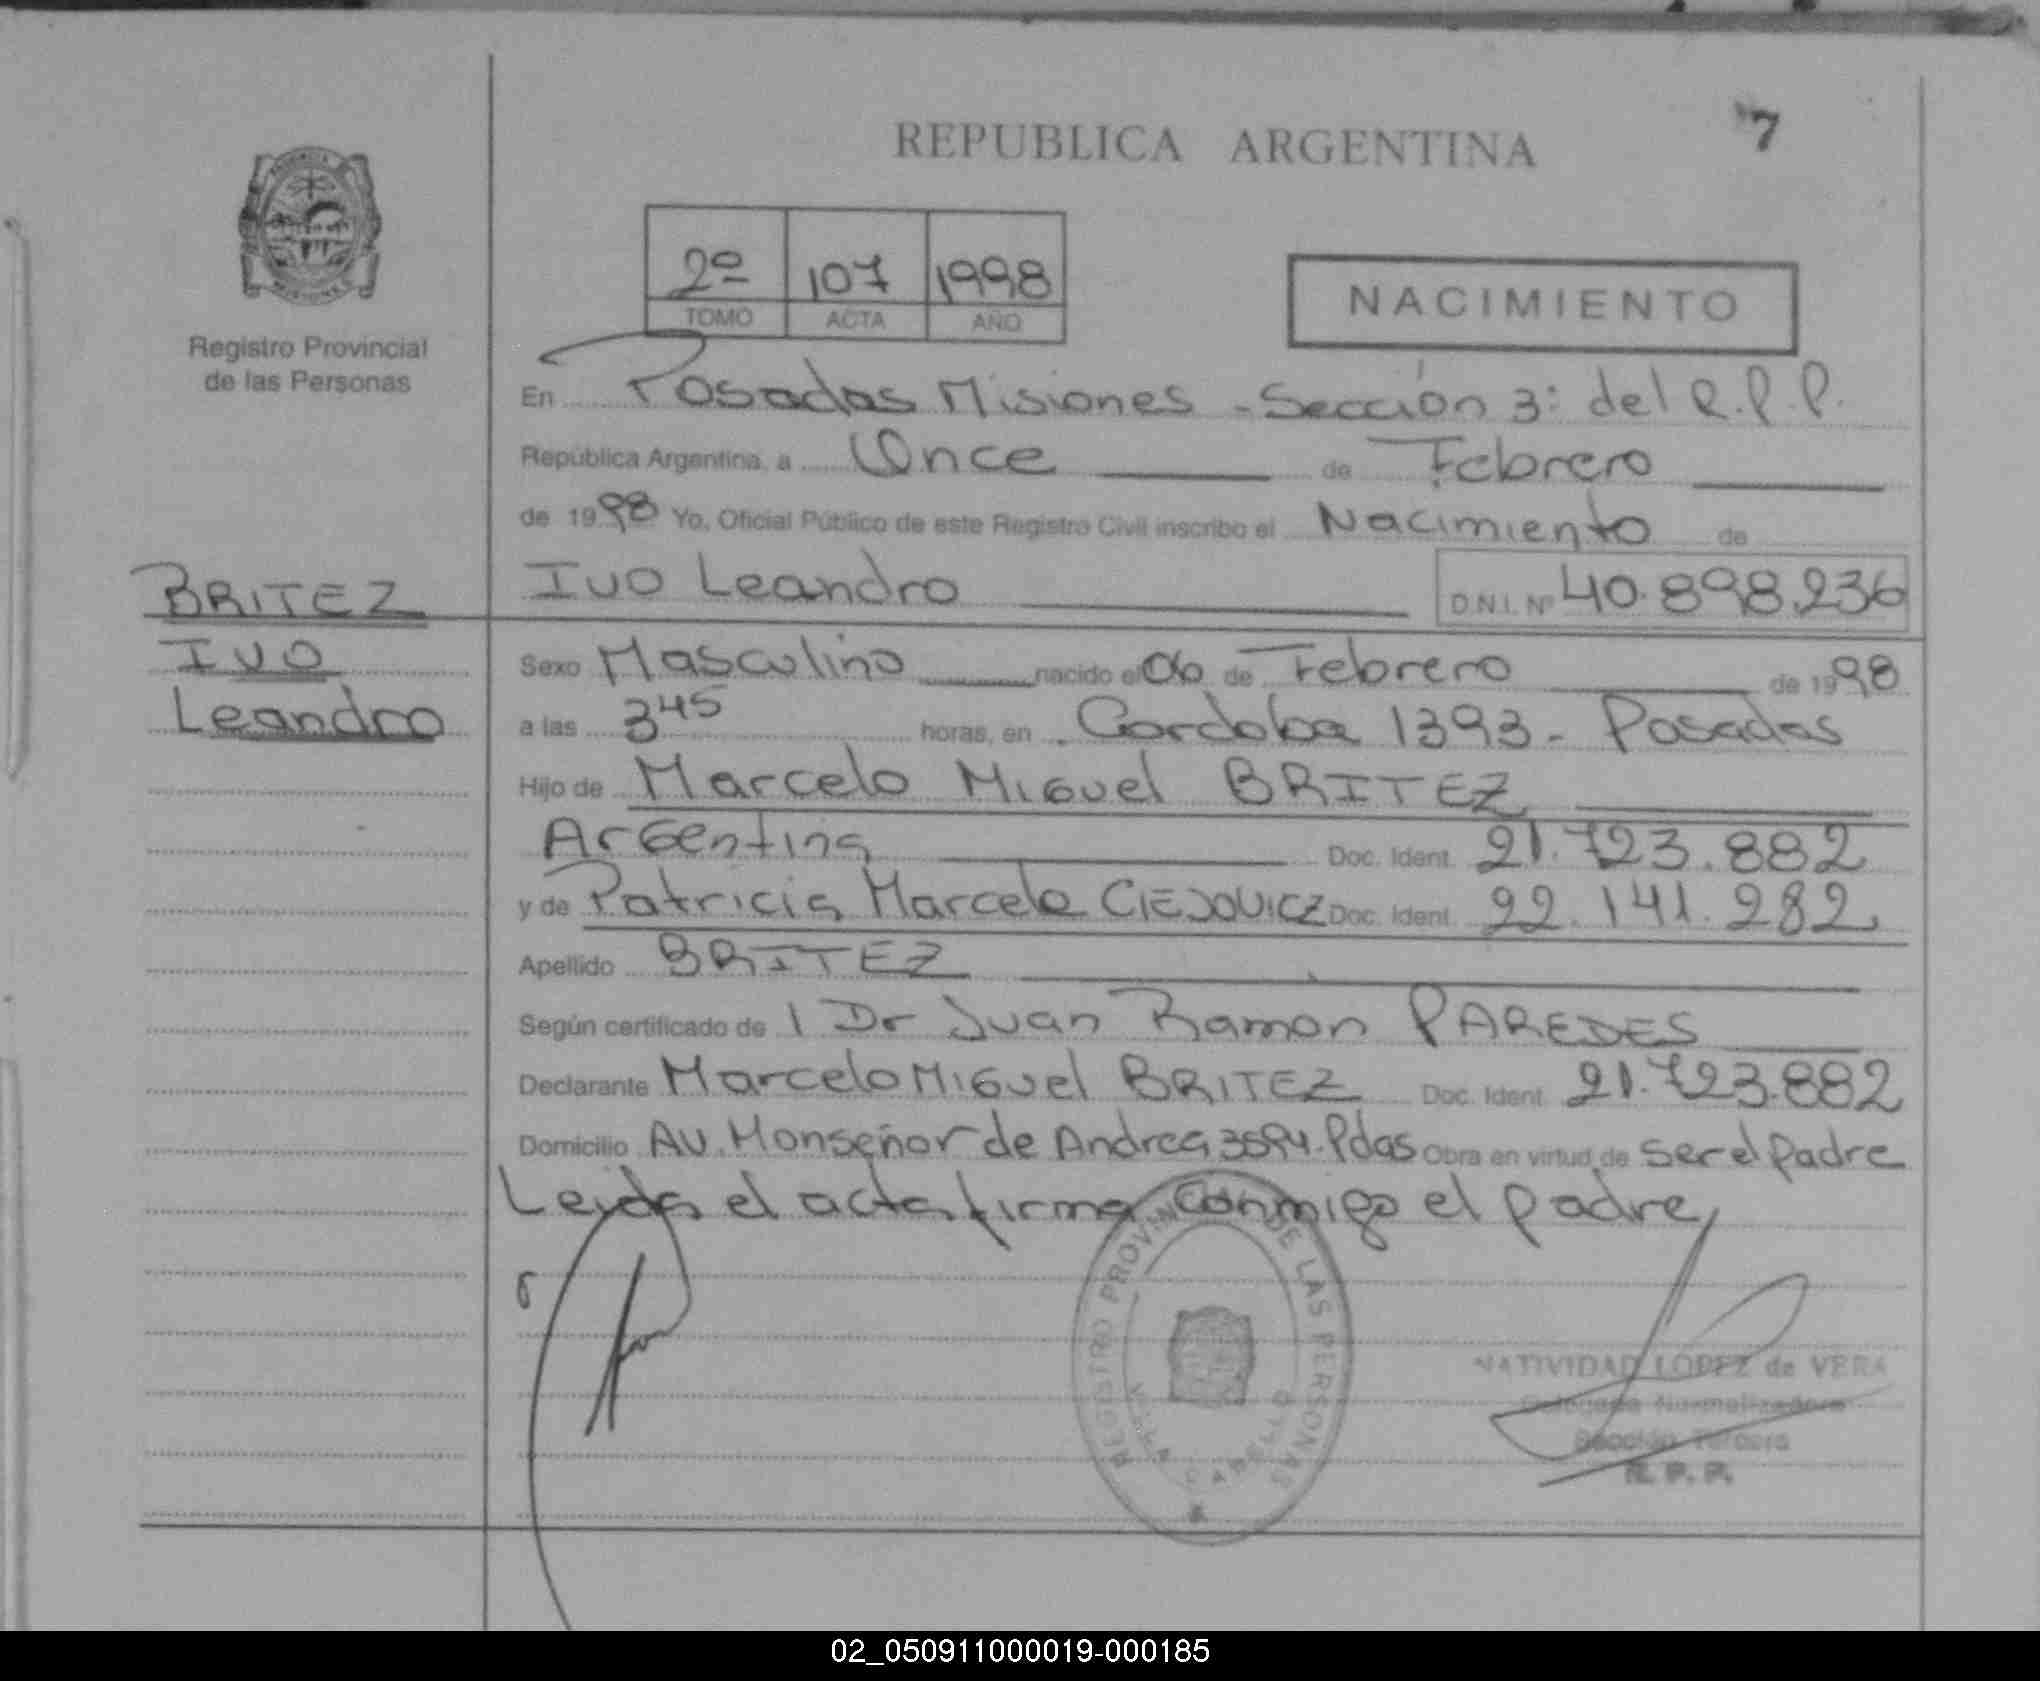 REPUBLICA ARGENTINA
7
2º 107 1998
TOMO ACTA AÑO
NACIMIENTO
Registro Provincial
de las Personas
En Posadas Misiones - Sección 3: del R.P.P.
República Argentina, a Once de Febrero
de 1998 Yo, Oficial Público de este Registro Civil inscribo el Nacimiento de
Ivo Leandro D.N.I. Nº 40.898.236
BRITEZ
IVO
Leandro
Sexo Masculino nacido el 06 de Febrero de 1998
a las 3 45 horas, en Cordoba 1393 - Posadas
Hijo de Marcelo Miguel BRITEZ
Argentina Doc. Ident. 21.723.882
y de Patricia Marcela CIEJOVICZ Doc. Ident. 22.141.282
Apellido BRITEZ
Según certificado de l Dr Juan Ramon PAREDES
Declarante Marcelo Miguel BRITEZ Doc. Ident. 21.723.882
Domicilio AV. Monseñor de Andrea 3594 - Pdas Obra en virtud de ser el Padre
Leida el acta firma conmigo el padre
REGISTRO PROVINCIAL DE LAS PERSONAS
VILLA CABELLO
NATIVIDAD LOPEZ de VERA
Delegada Normalizadora
Sección Tercera
R. P. P.
02_050911000019-000185